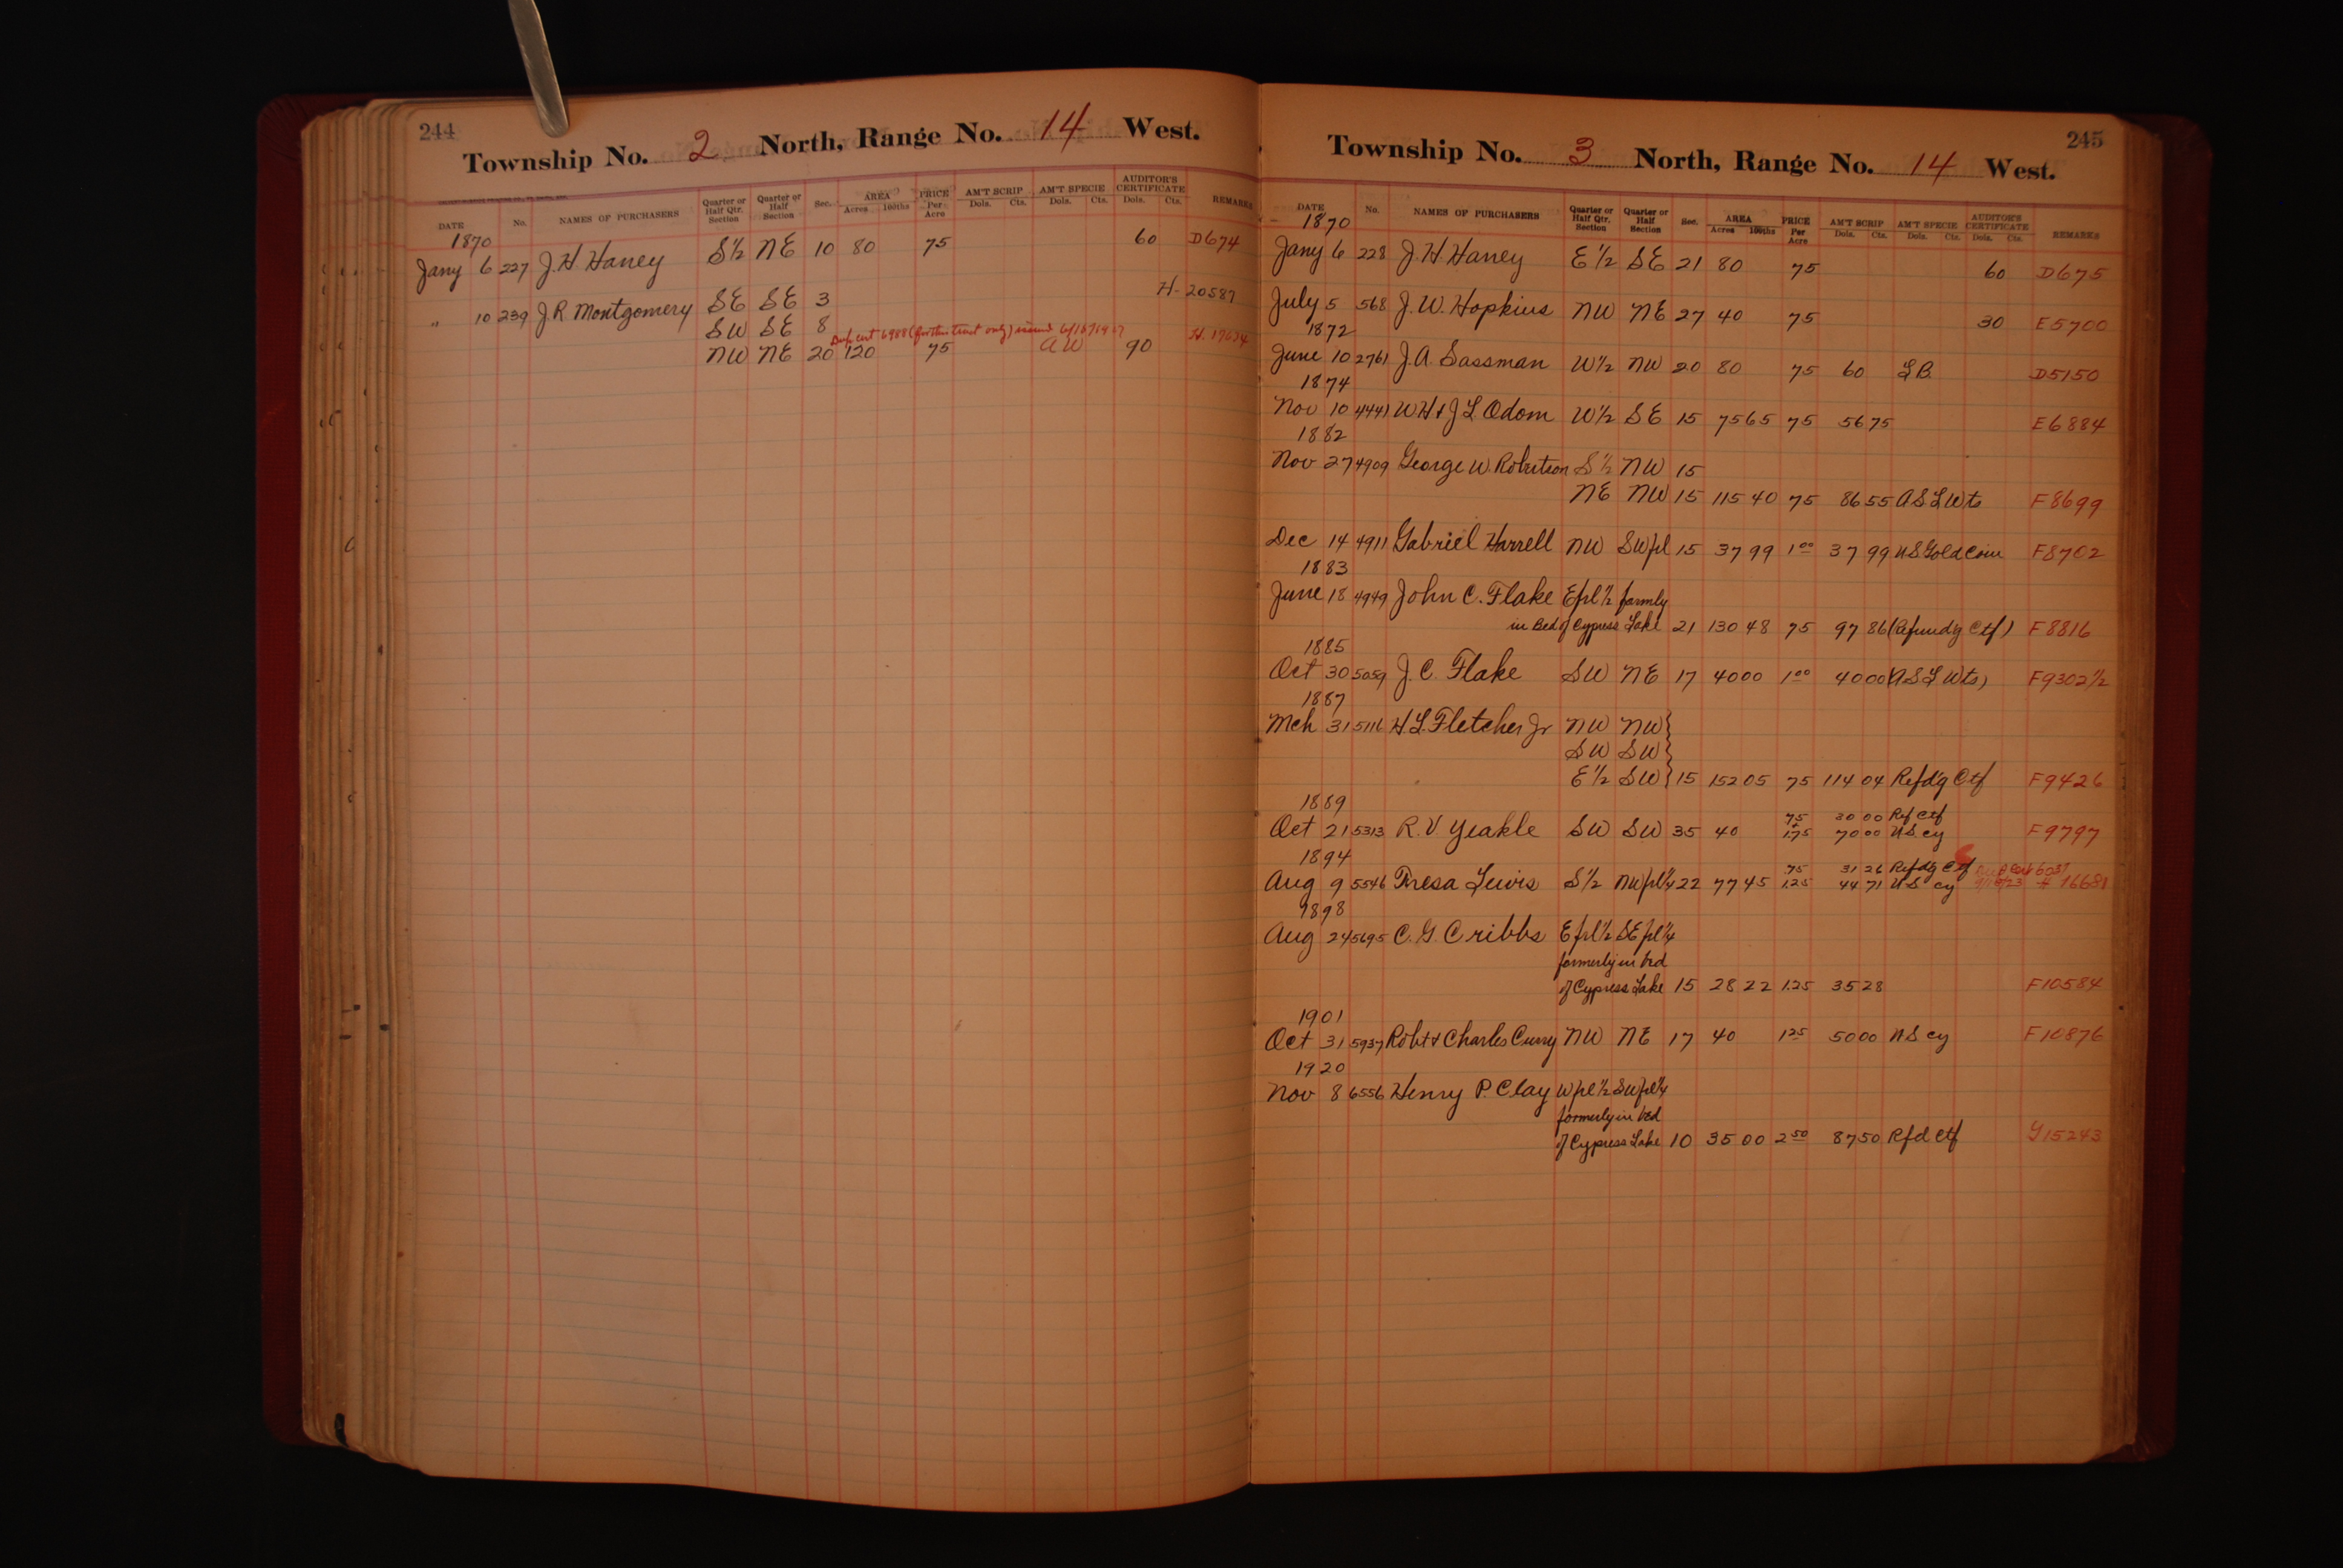 244
Township No. 2 North, Range No. 14 West.
DATE No. NAMES OF PURCHASERS Quarter or Half Qtr. Section Quarter or Half Section Sec. AREA Acres 100ths PRICE Per Acre AM'T SCRIP Dols. Cts. AM'T SPECIE Dols. Cts. AUDITOR'S CERTIFICATE Dols. Cts. REMARKS
1870
Jany 6 227 J. H. Haney S½ NE 10 80 75 60 D674
" 10 239 J. R. Montgomery SE SE 3 H- 20587
SW SE 8
Dup cert 6988 (for this tract only) issued H. 17634
NW NE 20 120 75 AW 90
245
Township No. 3 North, Range No. 14 West.
DATE No. NAMES OF PURCHASERS Quarter or Half Qtr. Section Quarter or Half Section Sec. AREA Acres 100ths PRICE Per Acre AM'T SCRIP Dols. Cts. AM'T SPECIE Dols. Cts. AUDITOR'S CERTIFICATE Dols. Cts. REMARKS
1870
Jany 6 228 J. H. Haney E½ SE 21 80 75 60 D675
July 5 568 J. W. Hopkins NW NE 27 40 75 30 E5700
1872
June 10 2761 J. A. Sassman W½ NW 20 80 75 60 L B. D5150
1874
Nov 10 4441 W H & J L Odom W½ SE 15 75 65 75 56 75 E6884
1882
Nov 27 4909 George W. Robertson S½ NW 15
NE NW 15 115 40 75 86 55 A S L Wts F8699
Dec 14 4911 Gabriel Harrell NW SWfrl 15 37 99 1 00 37 99 U S Gold Coin F8702
1883
June 18 4949 John C. Flake Efrl ½ formly
in Bed of Cypress Lake 21 130 48 75 97 86 (Refund'g Ctf) F8816
1885
Oct 30 5059 J. C. Flake SW NE 17 40 00 1 00 40 00 (A S L Wts) F9302½
1887
Mch 31 5116 H L. Fletcher Jr NW NW }
SW SW }
E½ SW } 15 152 05 75 114 04 Refd'g Ctf F9426
1889
75 30 00 Ref Ctf
Oct 21 5313 R. V Yeakle SW SW 35 40 1.75 70 00 U S cy F9797
1894
75 31 26 Refd'g Ctf
Aug 9 5546 Tresa Lewis S½ NWfrl¼ 22 77 45 1.25 44 71 U S cy # 16681
1898
Aug 24 5695 C. G. Cribbs Efrl½ SEfrl¼
formerly in bed
of Cypress Lake 15 28 22 1.25 35 28 F10584
1901
Oct 31 5937 Robt & Charles Curry NW NE 17 40 1 25 50 00 U S cy F10876
1920
Nov 8 6556 Henry P. Clay Wfrl½ SWfrl¼
formerly in bed
of Cypress Lake 10 35 00 2 50 87 50 Rfd ctf G15243